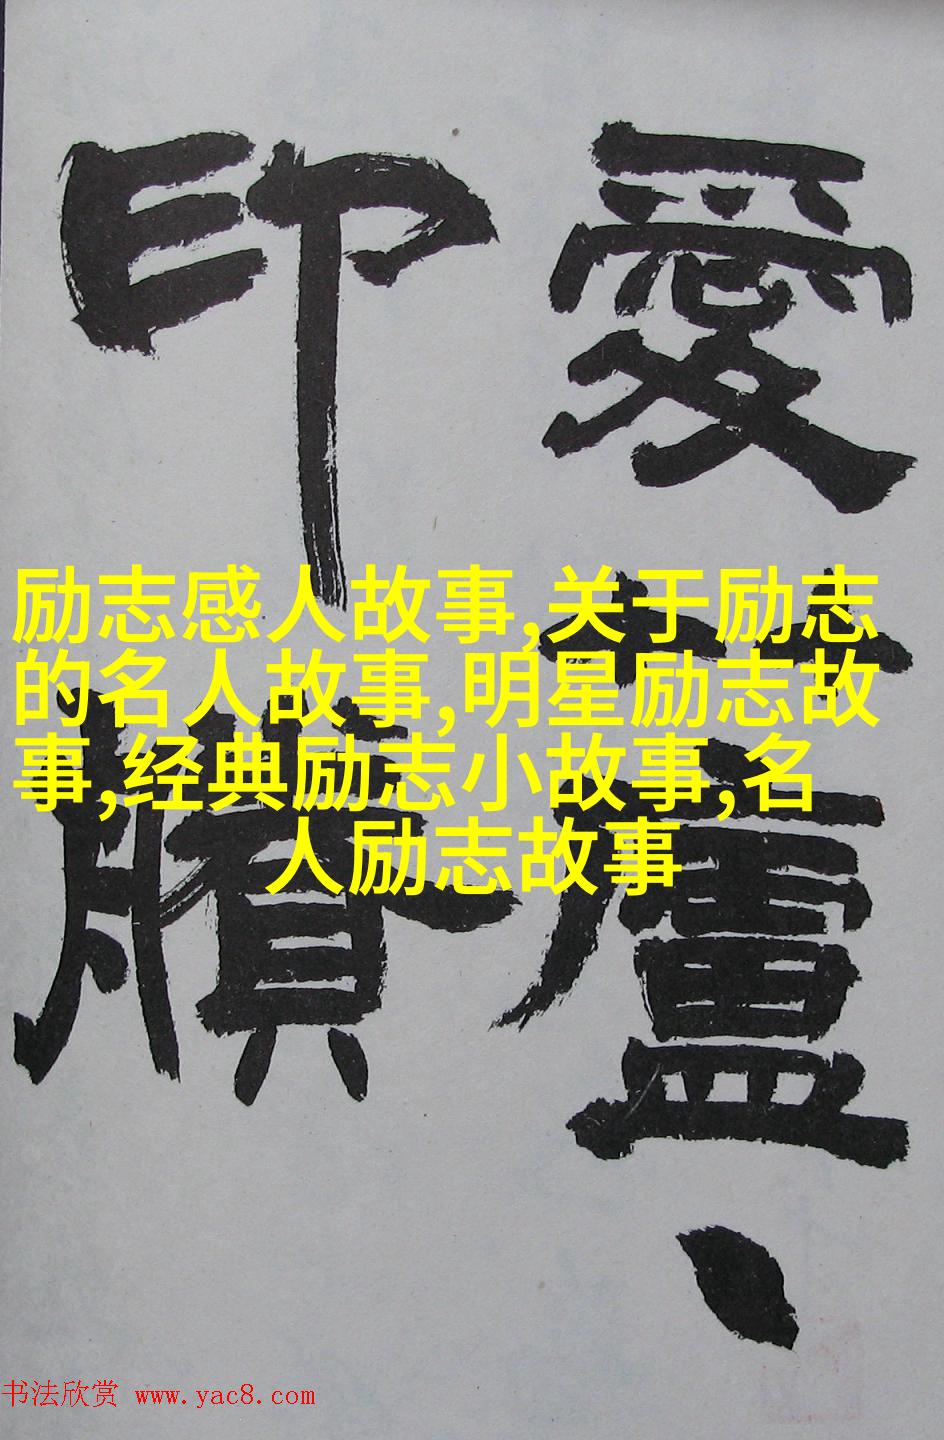 愛
印
励志感人故事,关于励志
的名人故事,明星励志故
事,经典励志小故事,名
人励志故事
书法欣赏 www.yac8.com